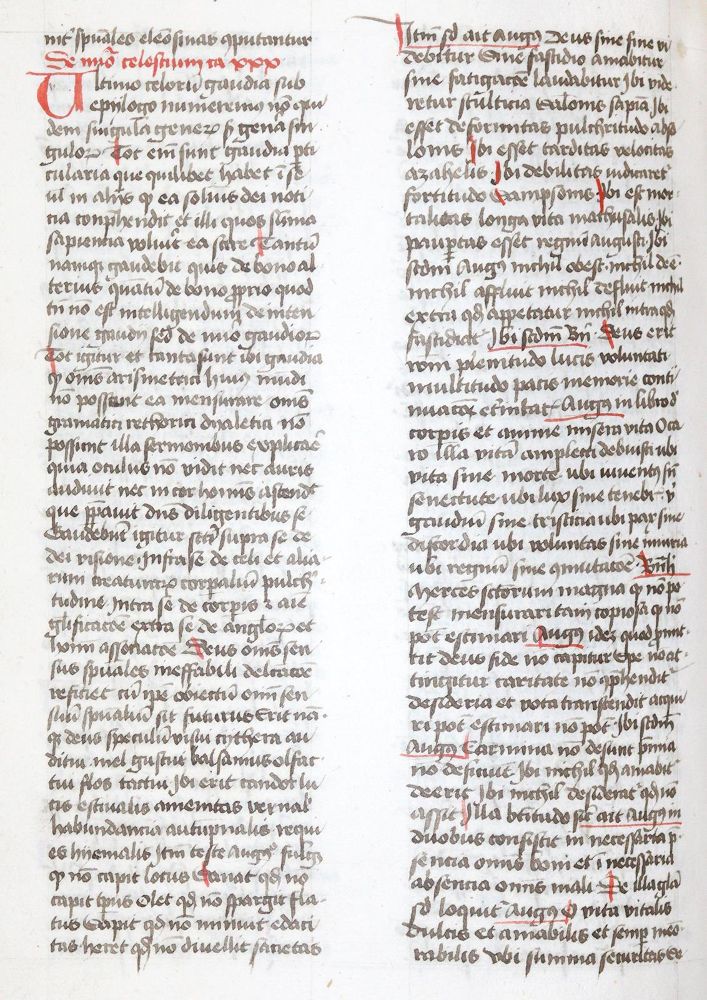 int͛ spūales eleosinas ꝯputantur
De nūo celestium ca xxx
Ultimo celorū gaudia sub
epilogo numeremus nō qui
dem singula generꝝ sꝫ gen̄a sin
gulorꝝ Tot em̄ sunt gaudia pti
cularia que quilibet habet ī se
ul in alijs ꝙ ea solius dei noti
cia conphendit et illi quos sūma
sapiencia voluit ea scire Tantū
namqꝫ gaudebit quis de bono al
terius quātū de bono ꝓprio quod
tn̄ nō est intelligendum de inten
sione gaudij sed de nūo gaudiorꝝ
Tot igitur et tanta sunt ibi gaudia
ꝙ oms arismetrici huius mūdi
nō possent ea mensurare oms
gramatici rethorici dyaletici nō
possunt illa sermonibus explicare
quia oculus nō vidit nec auris
audiuit nec in cor hominis ascendit
que ꝑpauit dns diligentibus se
Gaudebunt igitur scī supra se de
dei visione Infra se de celi et alia
rum creaturarꝝ corpalium pulch
tudine Intra se de corpis ⁊ aīe
glificacōe extra se de angelorꝝ et
hoīm associacōe Deus oms sen
sus spūales ineffabili delectacōe
reficiet cū ipē obiectū omī sen
suū spūaliū sit futurus Erit nā
qꝫ deus speculū visui cythera au
ditui mel gustui balsamus olfac
tui flos tactui Ibi erit candor lu
cis estiualis amenitas vernal
habundancia autūpnalis requi
es hyemalis Itm̄ teste Augꝰ fulgꝫ
ꝙ nō capit locus Sonat qd̄ nō
capit tp̄us Olet qd̄ nō spargit fla
tus Sapit qd̄ nō minuit edaci
tas heret qd̄ nō diuellit sacietas
Itm̄ sꝫ ait Augꝰ Deus sine fine vi
debitur Sine fastidio amabitur
sine fatigacōe laudabitur Ibi vide
retur stulticia Salomīs sapīa Ibi
esset deformitas pulchritudo abso
lonis Ibi esset tarditas velocitas
azahelis Ibi debilitas iudicaret
fortitudo Sampsonis Ibi est mor
talitas longa vita mathusalis Ibi
paupertas esset regnū augusti Ibi
scdm̄ Augꝫ nichil obest nichil deē
nichil affluit nichil defluit nichil
extra qd̄ appetatur nichil intra qd̄
fastidiat Ibi scdm̄ Bn̄ Deus erit
rōni plenitudo lucis voluntati
multitudo pacis memorie conti
nuacō et̄nitat Augꝰ in libro d
corpis et anime misera vita O ca
ro illa vitā amplecti debuisti ubi
vita sine morte ubi iuuentꝰ sn̄
senectute ubi lux sine tenebr v̄
gaudiū sine tristicia ubi pax sine
discordia ubi voluntas sine iniuria
ubi regnum sine ꝯmutacōe Bn̄h
Merces sctorum magna ꝙ nō po
test mensurari tam copiosa ꝙ nō
pōt estimari Augꝰ idē quod ꝓmit
tit deus fide nō capitur Spe nō at
tingitur caritate nō ꝯphendit
desideria et vota transcendit acqui
ri pōt estimari nō pōt Ibi scdm̄
Augꝫ Carmina nō desunt ꝓmia
nō deficiunt Ibi nichil qd̄ amabit
deerit Ibi nichil desiderat qd̄ nō
assit Illa btitudo sic̄ ait Augꝰ in
duobus consistit in necessaria p
sencia omīs boni et ī necessaria
absencia omīs mali De illa glā
sꝫ loquit Augꝰ O vita vitalis
dulcis et amabilis et semp meo
rabilis Ubi summa securitas Se